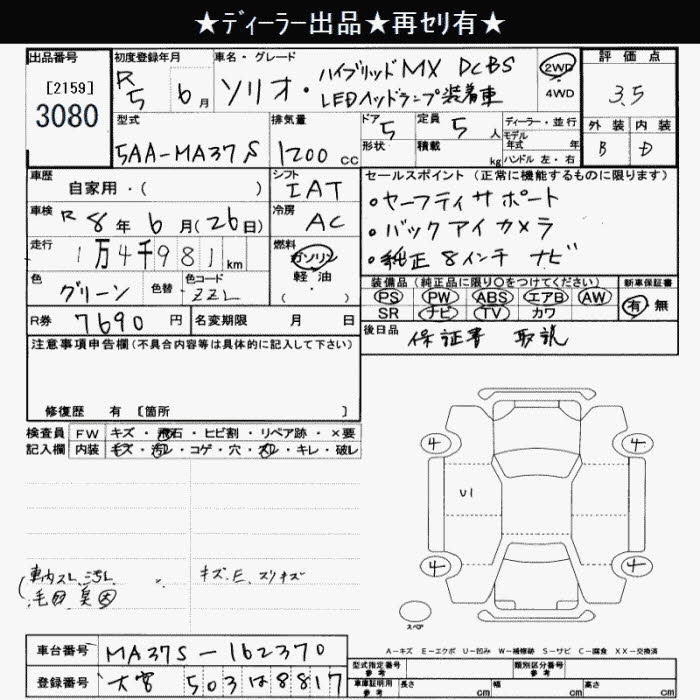 ★ディーラー出品★再セリ有★
出品番号 [2159] 3080
初度登録年月 R5 6月
車名・グレード ソリオ・ハイブリッドMX DCBS
LEDヘッドランプ装着車
2WD 4WD
評価点 3.5
外装 内装
B D
型式 5AA-MA37S
排気量 1200 cc
ドア 5 形状
定員 5 人 積載 kg
ディーラー・並行
モデル年式 年
ハンドル 左・右
車歴 自家用・( )
シフト IAT
車検 R8年6月(26日)
冷房 AC
走行 1万4千981km
燃料 ガソリン 軽油 ( ・ )
色 グリーン 色替 色コード ZZL
R券 7690円 名変期限 月 日
セールスポイント(正常に機能するものに限ります)
・セーフティサポート
・バックアイカメラ
・純正8インチナビ
装備品(純正品に限り〇をつけてください) 新車保証書
PS PW ABS エアB AW 有 無
SR ナビ TV カワ
後日品 保証書 取説
注意事項申告欄(不具合内容等は具体的に記入して下さい)
修復歴 有 [箇所 ]
検査員 FW キズ・飛石・ヒビ割・リペア跡・×要
記入欄 内装 キズ・汚レ・コゲ・穴・スレ・キレ・破レ
車内スレ、汚レ キズ、E、スリキズ
毛 臭
4 4
U1
4 4
スペア
A-キズ E-エクボ U-凹み W-補修跡 S-サビ C-腐食 XX-交換済
車台番号 MA37S-162370
登録番号 大宮 503 は 8817
型式指定番号 参考 類別区分番号 参考
車庫証明用 参考 長さ cm 幅 cm 高さ cm